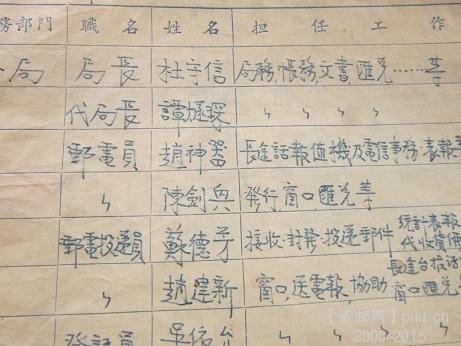 務部門 職名 姓名 担任工作
局 局長 杜宇信 局務、帳務、文書匯兑……等
代局長 譚 〃 〃 〃 〃
郵電員 趙神 長途話報值機及電信事務·表報等
〃 陳劍 發行窗口匯兑等
郵電投遞員 蘇德芳 接收·封發·投遞郵件 統計·表報 代收貨價
〃 趙建新 窗口,送電報,協助 長途台 窗口匯兑
員 吳佑 〃 〃 〃 〃
【善邮网】puu.cn
2005-2015